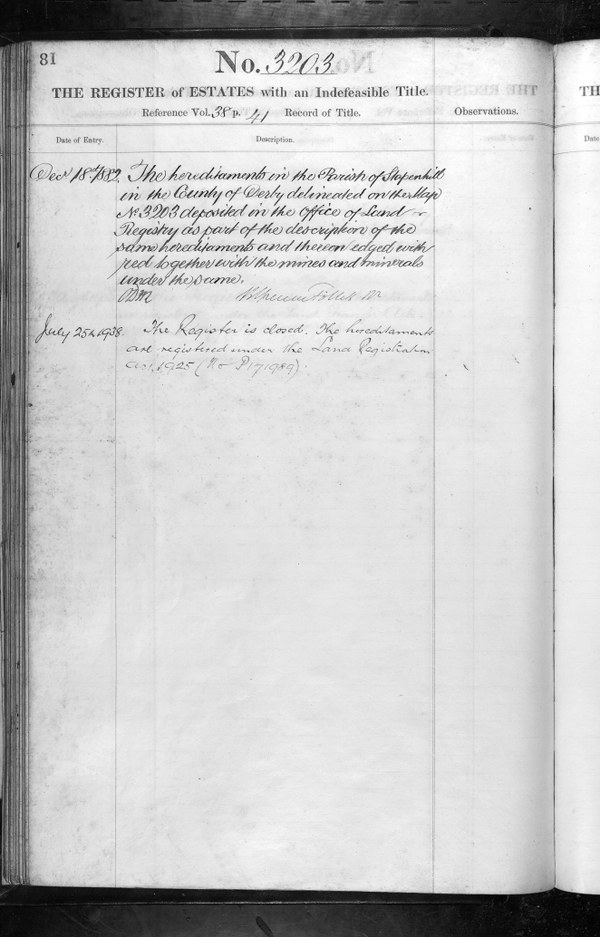 81
No. 3203
THE REGISTER of ESTATES with an Indefeasible Title.
Reference Vol. 38 p. 41 Record of Title.
Observations.
Date of Entry.
Description.
Decr 18th 1882. The hereditaments in the Parish of Stapenhill
in the County of Derby delineated on the Map
No. 3203 deposited in the office of Land
Registry as part of the description of the
same hereditaments and thereon edged with
red together with the mines and minerals
under the same.
July 25th 1938. The Register is closed. The hereditaments
are registered under the Land Registration
Act, 1925 (No P171989).
TH
Date